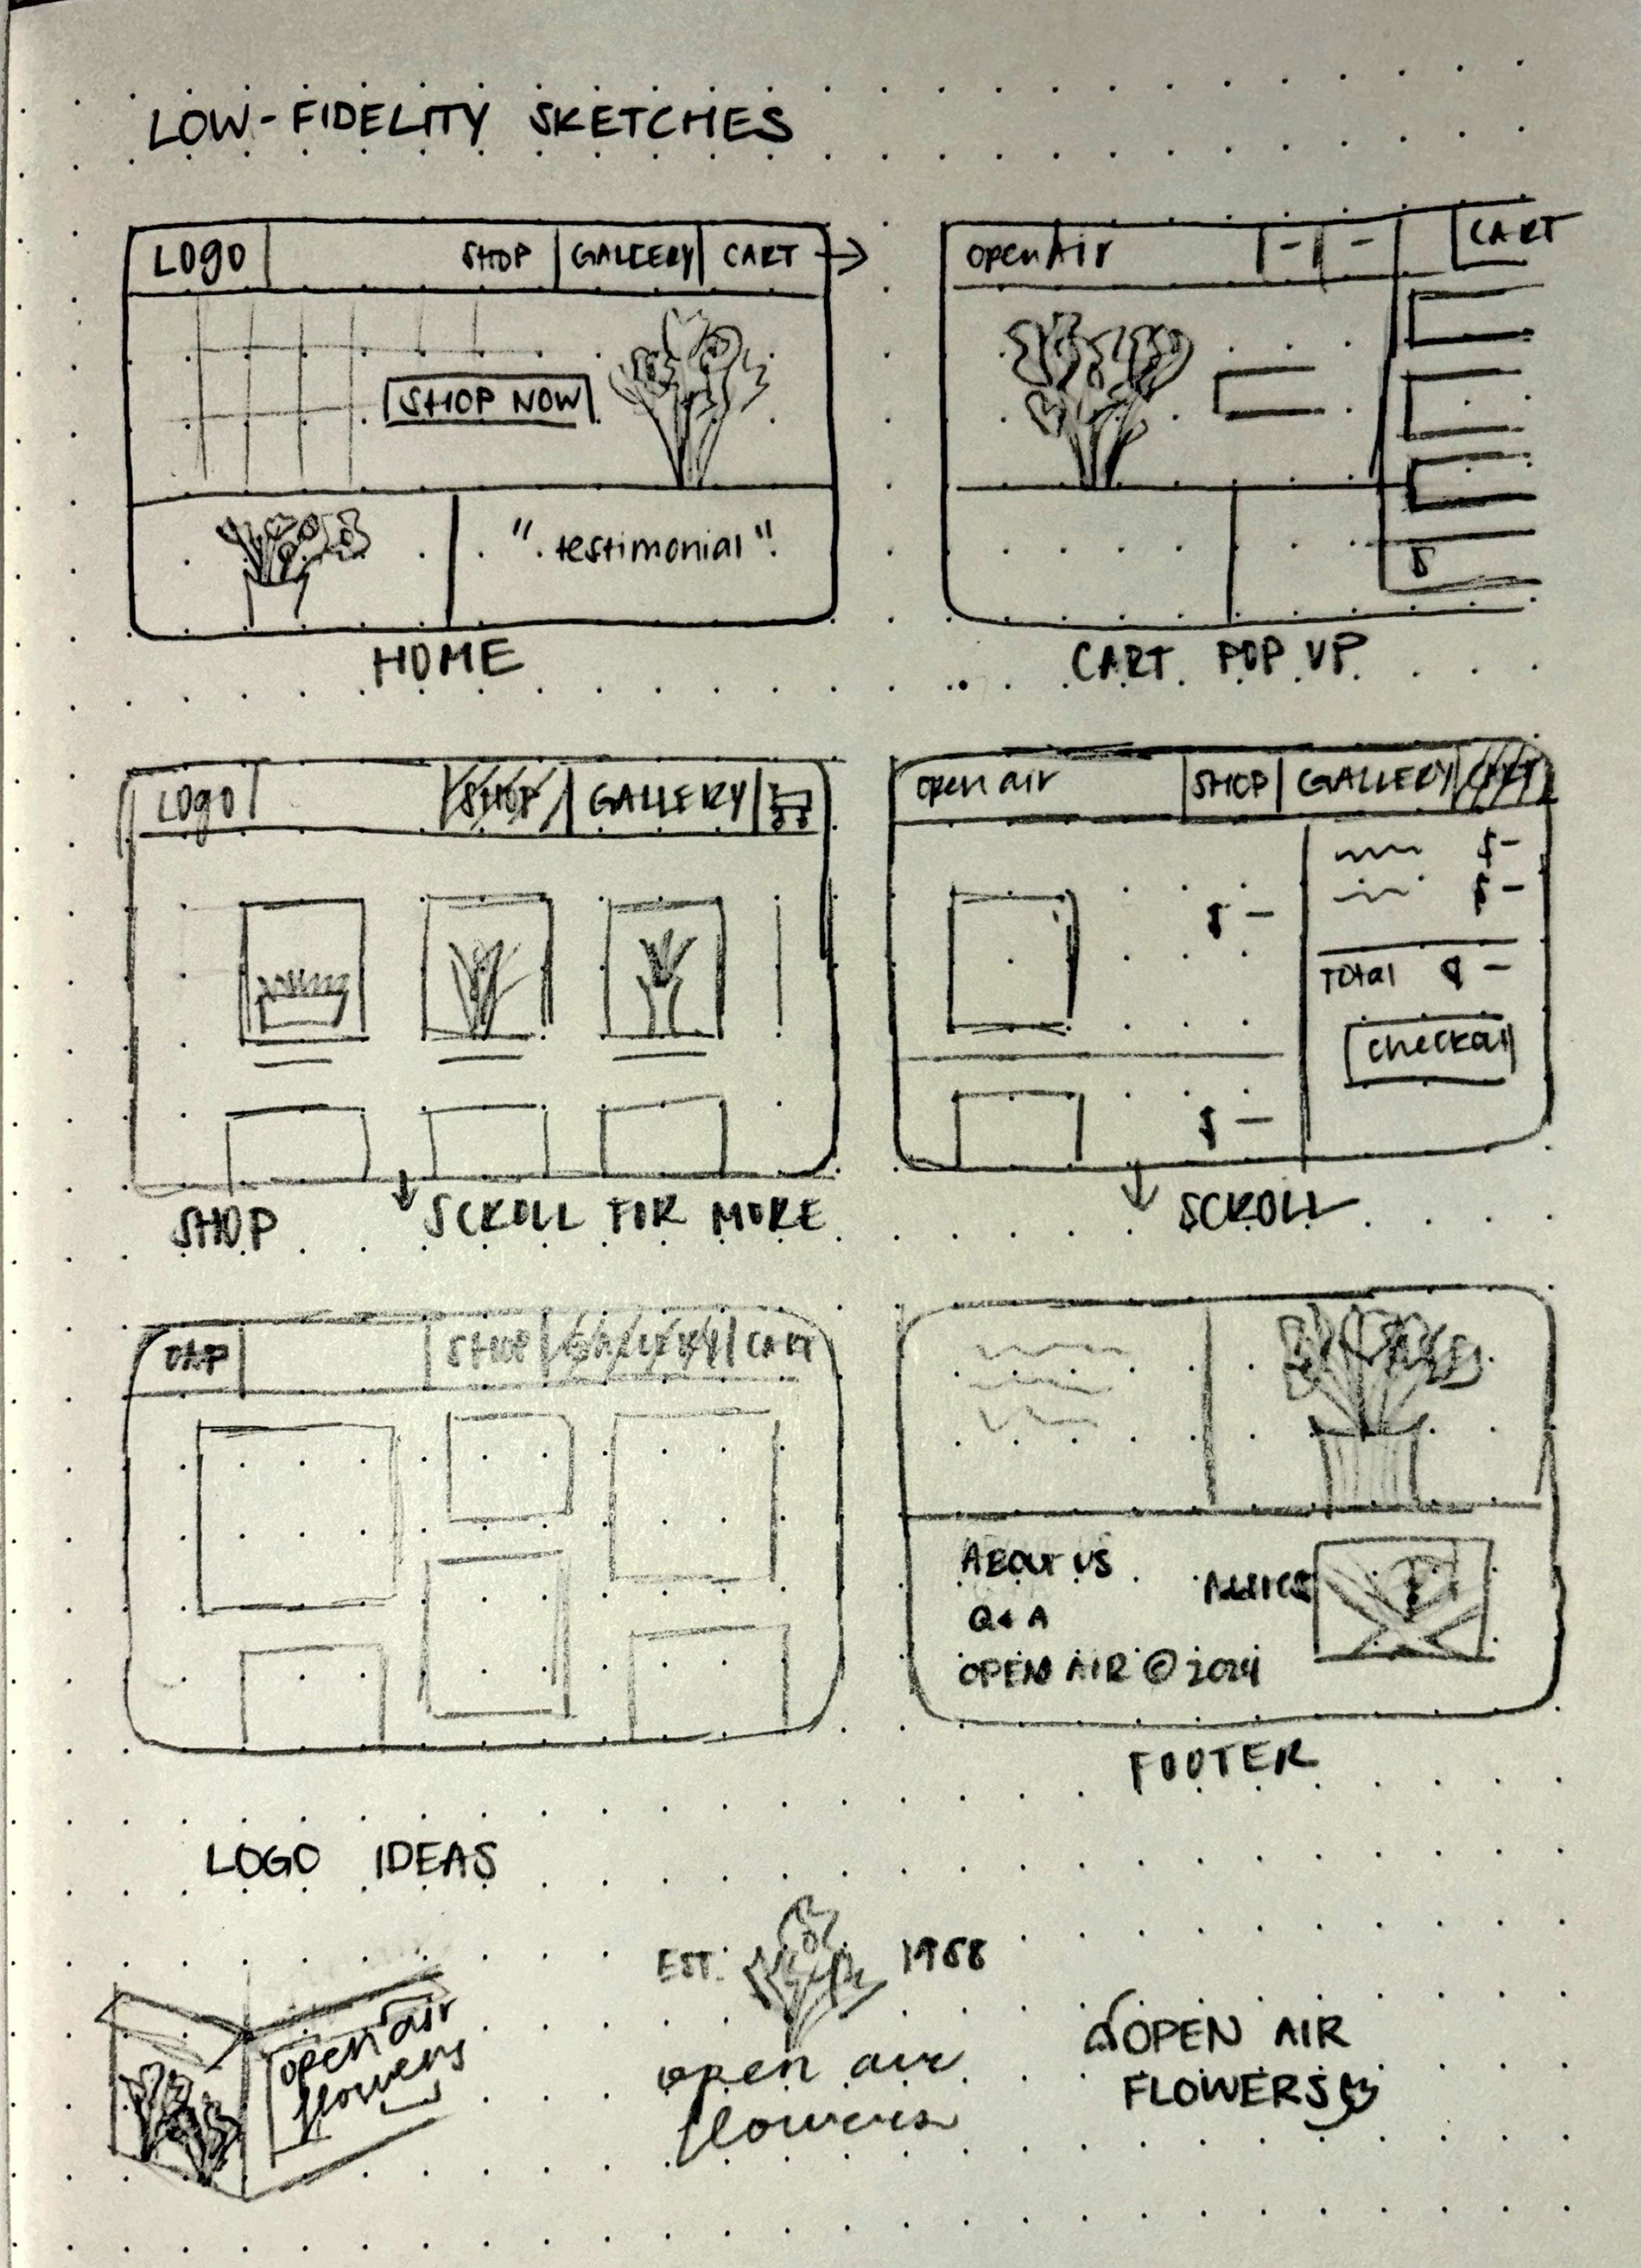 LOW-FIDELITY SKETCHES
LOGO SHOP GALLERY CART
SHOP NOW
"testimonial"
HOME
open Air - - CART
$
CART POP UP
LOGO SHOP GALLERY
SHOP
SCROLL FOR MORE
open air SHOP GALLERY CART
$ -
$ -
$ -
Total $ -
checkou
$ -
SCROLL
SHOP GALLERY CART
ABOUT US
Q & A
OPEN AIR © 2024
FOOTER
LOGO IDEAS
open air
flowers
EST. 1988
open air
flowers
OPEN AIR
FLOWERS